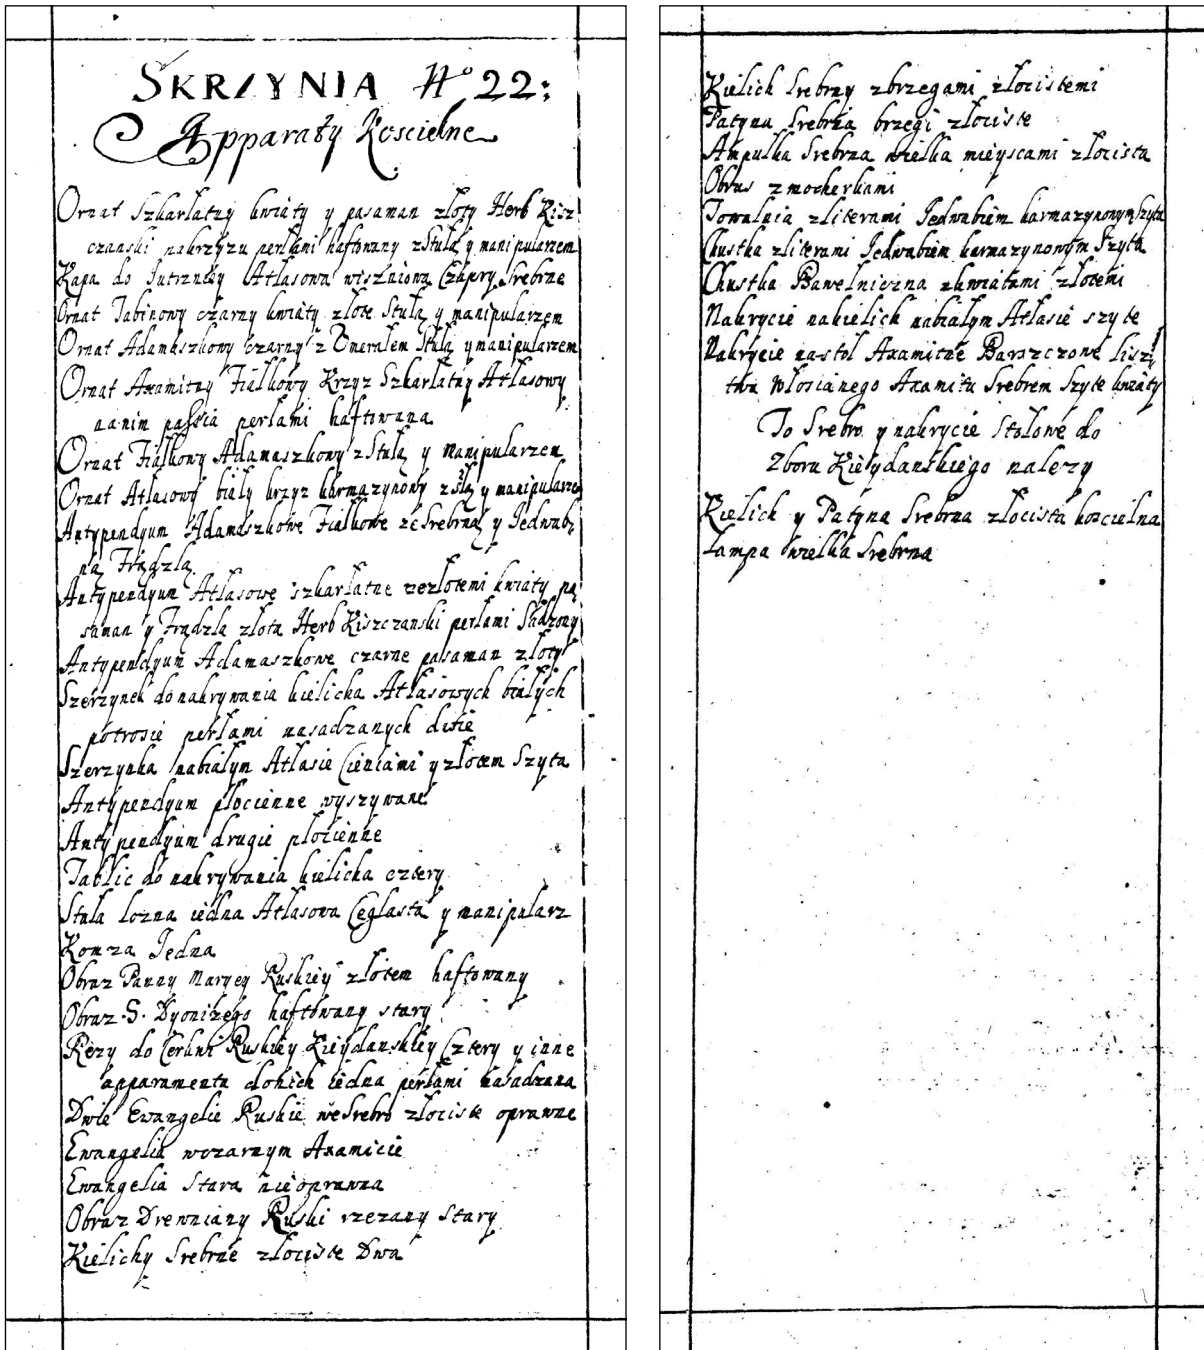 SKRZYNIA No 22:
Apparaty Koscielne
Ornat Szkarłatny kwiaty y pasaman złoty Herb Kisz
czanski nakrzyzu perłami haftowany zStułą y manipularzem
Kapa do Jutrznley Atłasowa wiszniowa Czapry Srebrne
Ornat Tabinowy czarny kwiaty złote Stułą y manipularzem
Ornat Adamaszkowy czarny z Stułą y manipularzem
Ornat Axamitny Fiałkowy Krzyz Szkarłatny Atłasowy
nanim passia perłami haftowana
Ornat Fiałkowy Adamaszkowy zStułą y Manipularzem
Ornat Atłasowy biały krzyz karmazynowy zstłą y manipularze
Antypendyum Adamaszkowe Fiałkowe ze Srebrną y Jedwab
ną Frądzlą
Antypendyum Atłasowe szkarłatne zezłotemi kwiaty pa
saman y Frądzla złota Herb Kiszczanski perłami Sadzony
Antypendyum Adamaszkowe czarne pasaman złoty
Szerzynek do nakrywania kielicha Atłasowych białych
potrosie perłami nasadzanych dwie
Szerzynka nabiałym Atłasie Cieniami y złotem Szyta
Antypendyum płocienne wyszywane
Antypendyum drugie płocienne
Tablic do nakrywania kielicha cztery
Stuła lozna iedna Atłasowa Ceglasta y manipularz
Komza Jedna
Obraz Panny Maryey Ruskiey złotem haftowany
Obraz S. Dyonizego haftowany stary
Rezy do Cerkwi Ruskiey Kieydanskiey Cztery y inne
apparamenta donich iedna perłami nasadzana
Dwie Ewangelie Ruskie weSrebro złociste oprawne
Ewangelia wczarnym Axamicie
Ewangelia Stara nieoprawna
Obraz Drewniany Ruski rzezany Stary
Kielichy Srebrne złociste Dwa
Kielich Srebrny zbrzegami złocistemi
Patyna Srebrna brzegi złociste
Ampułka Srebrna wielka mieyscami złocista
Obrus zmocherkami
Towalnia zliterami Jedwabiem karmazynonym Szyta
Chustka zliterami Jedwabiem karmazynowym Szyta
Chustka Bawełniczna zkwiatami złotemi
Nakrycie nakielich nabiałym Atłasie szyte
Nakrycie nastoł Axamitne Barszczowe lisz
twa Włosianego Axamitu Srebrem Szyte kwiaty
To Srebro y nakrycie Stołowe do
Zboru Kieydanskiego nalezy
Kielich y Patyna Srebrna złocista koscielna
Lampa wielka Srebrna